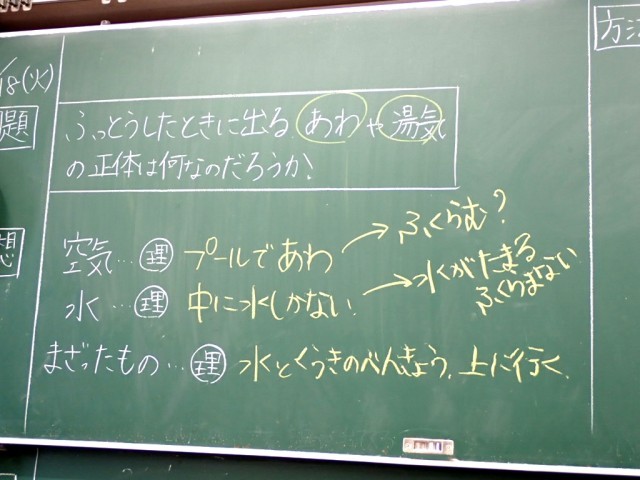 18(火)
題
ふっとうしたときに出るあわや湯気
の正体は何なのだろうか!
想
空気…理 プールであわ → ふくらむ?
水…理 中に水しかない → 水がたまる
ふくらまない
まざったもの…理 水とくうきのべんきょう。上に行く。
方法